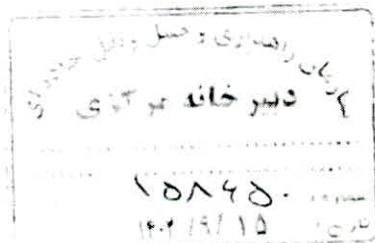 سازمان راهداری و حمل و نقل جاده‌ای
دبیرخانه مرکزی
شماره: ۱۵۸۶۵۰
تاریخ: ۱۴۰۲/۹/۱۵